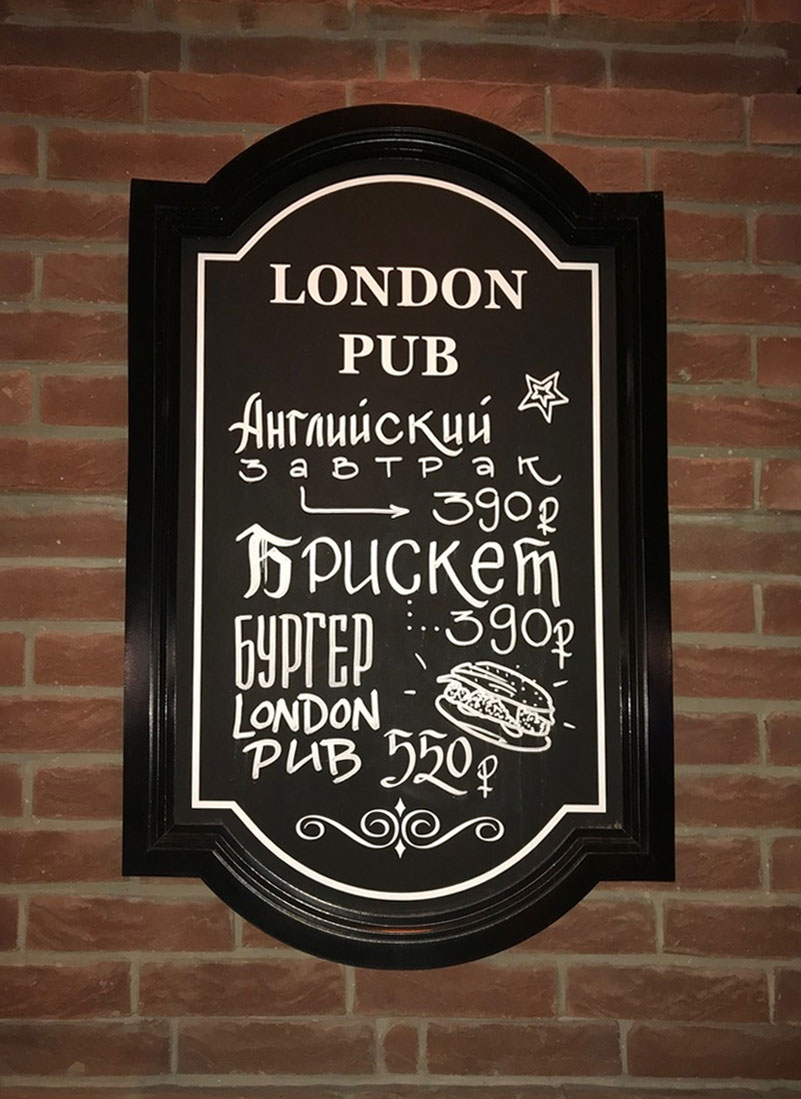 LONDON
PUB
Английский
завтрак
390₽
Брискет
390₽
БУРГЕР
LONDON
PUB 550₽